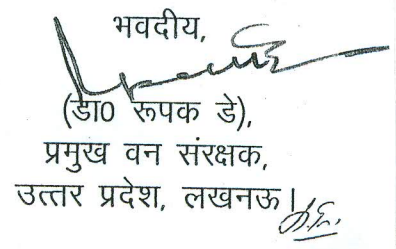 भवदीय,
(डा0 रूपक डे),
प्रमुख वन संरक्षक,
उत्तर प्रदेश, लखनऊ।